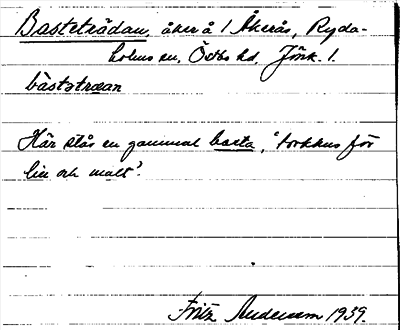 Basteträdan, åker å 1 Åkerås, Ryda-
holms sn, Östbo hd, Jönk. l.
bàststræan
Här står en gammal basta, 'torkhus för
lin och malt'.
Fritz Anderson 1939.